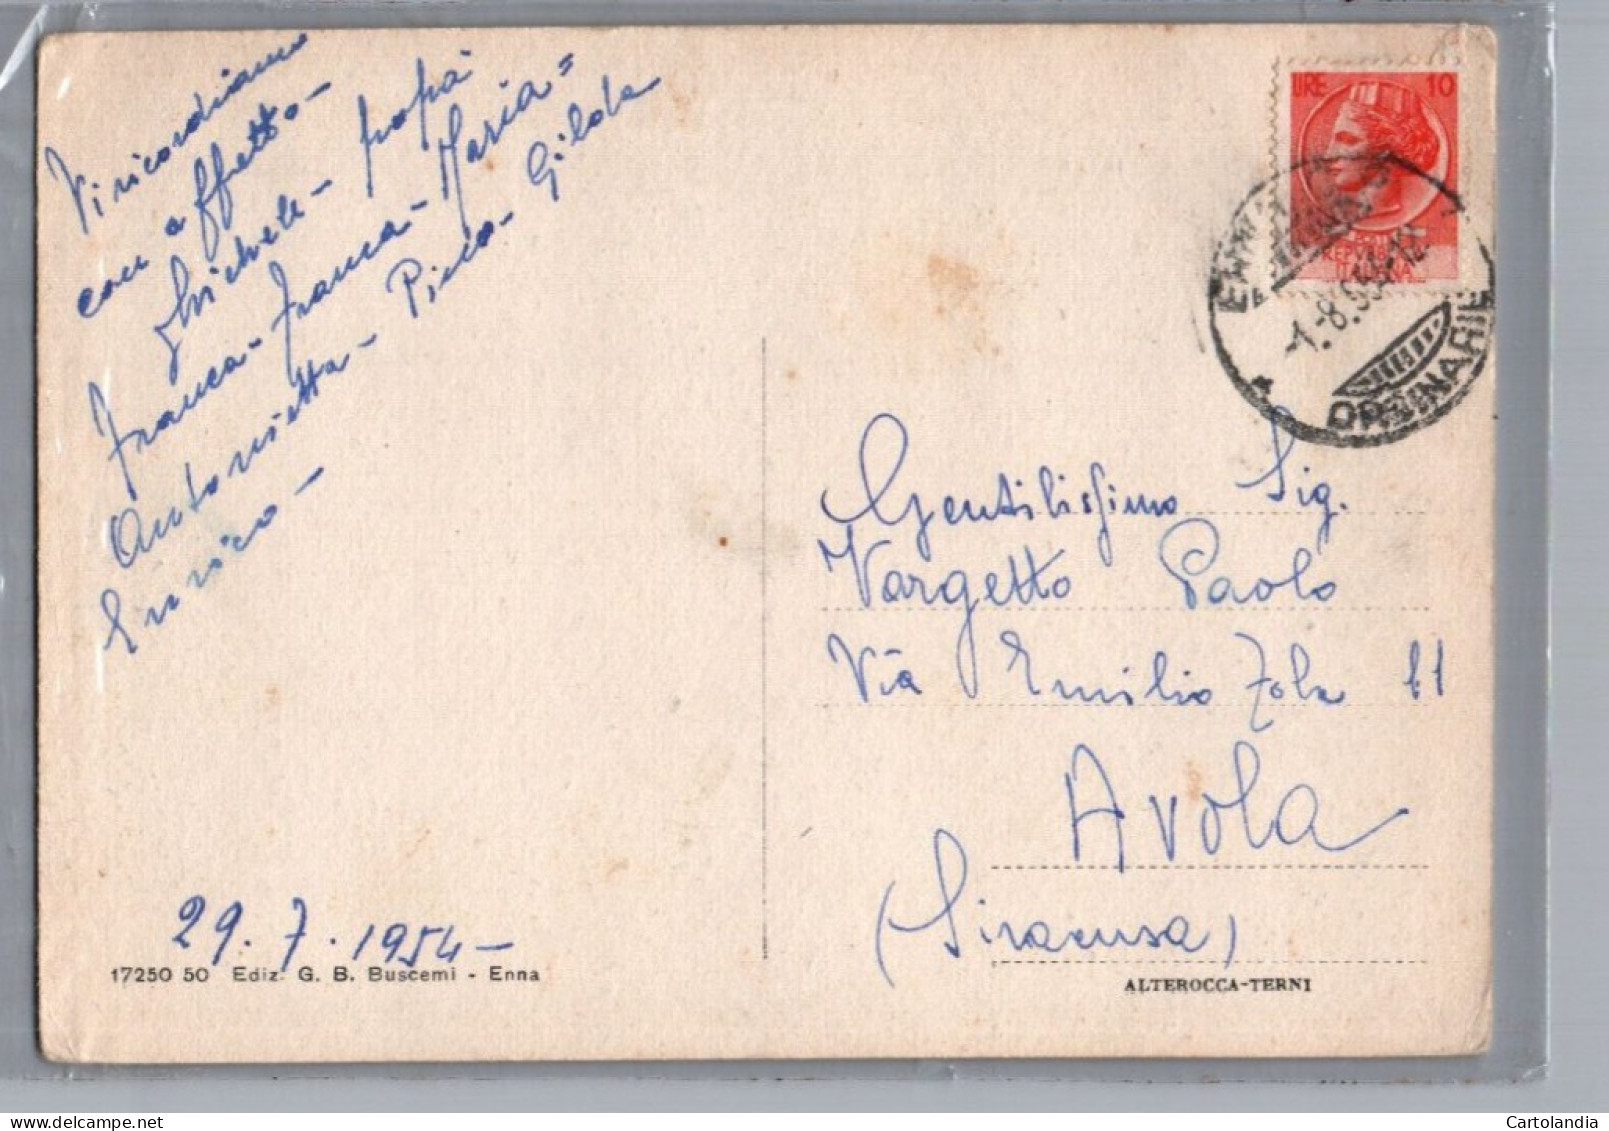 Vi ricordiamo
con affetto -
Michele - papà
Franca - Franca - Maria =
Antonietta - Pico - Gilda
Enrico -
29.7.1954 -
17250 50 Ediz. G. B. Buscemi - Enna
LIRE 10
REPUBBLICA
ITALIANA
ENNA
-1.-8.954-12
ORDINARIE
Gentilissimo Sig.
Vargetto Paolo
Via Emilio Zola 11
Avola
(Siracusa)
ALTEROCCA-TERNI
Cartolandia